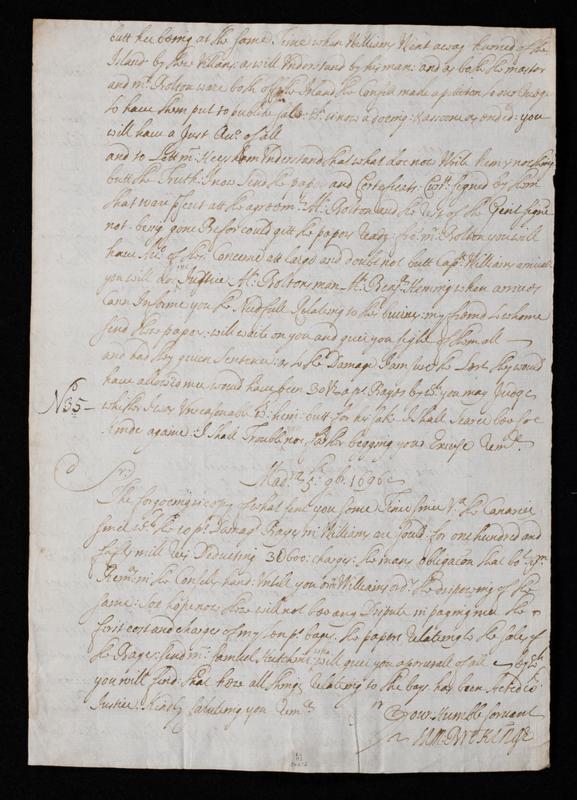 butt hee being at the same Time when Williams Went away hurried of the
Island by these Villians: as will Understand by his man: and by both the master
and mr Bolton ware both off the Island the Consul made a petition to our Judge
to have them put to publick sale: wch is now a doeing: & as soone as ended: you
will have a Just Acc of all
and to Lett mr Heysham Understand that what doe now Write him is nothing
butt the Truth: I now send the papers and Certeficats signed by them
that ware present att the Mr Bolton and the rest of the Gent signe
not being gone Before could gett the papers Ready: mr Bolton you will
have of this Concerne att large and doubt not butt Cap Williams arrivall
you will doe me Justice Mr Boltons man Mr Benja Heming when arrives
cann Informe you the Needfull Relateing to the buisnes: my friend to whome
send these papers: will waite on you and give you sight of them all
and had they given Sentence: as to the Damage I am sure the Least they would
have allowed mee would have been 30 Bags by wch you may Judge
No 35 whither I was Unreasonable with him: butt for his sake I shall scarce bee soe
kinde againe: I shall Trouble noe farther begging your Excuse Rem
Sr Madra 5th 9br 1696
The forgoeing is copy of what sent you some Time since Via the Canaries
since wch the Damag Bags mr Williams are sould: for one hundred and
fifty mill Reis Deducting 30600: charges: the mans obligation that bo
Rem: in the Consuls hand: Untill you or mr Williams ordr the disposeing of the
same: soe hope now there will not bee any Dispute in paying mee the
first cost and charges of my bags. the papers Relateing to the sale of
the Bags: send mr Samuel will give you a perusall of all by wch
you will find that all things Relateing to the bags has been Acted wth
Justice Kindly saluteing you Rem
Yowr Humble servant
Wm